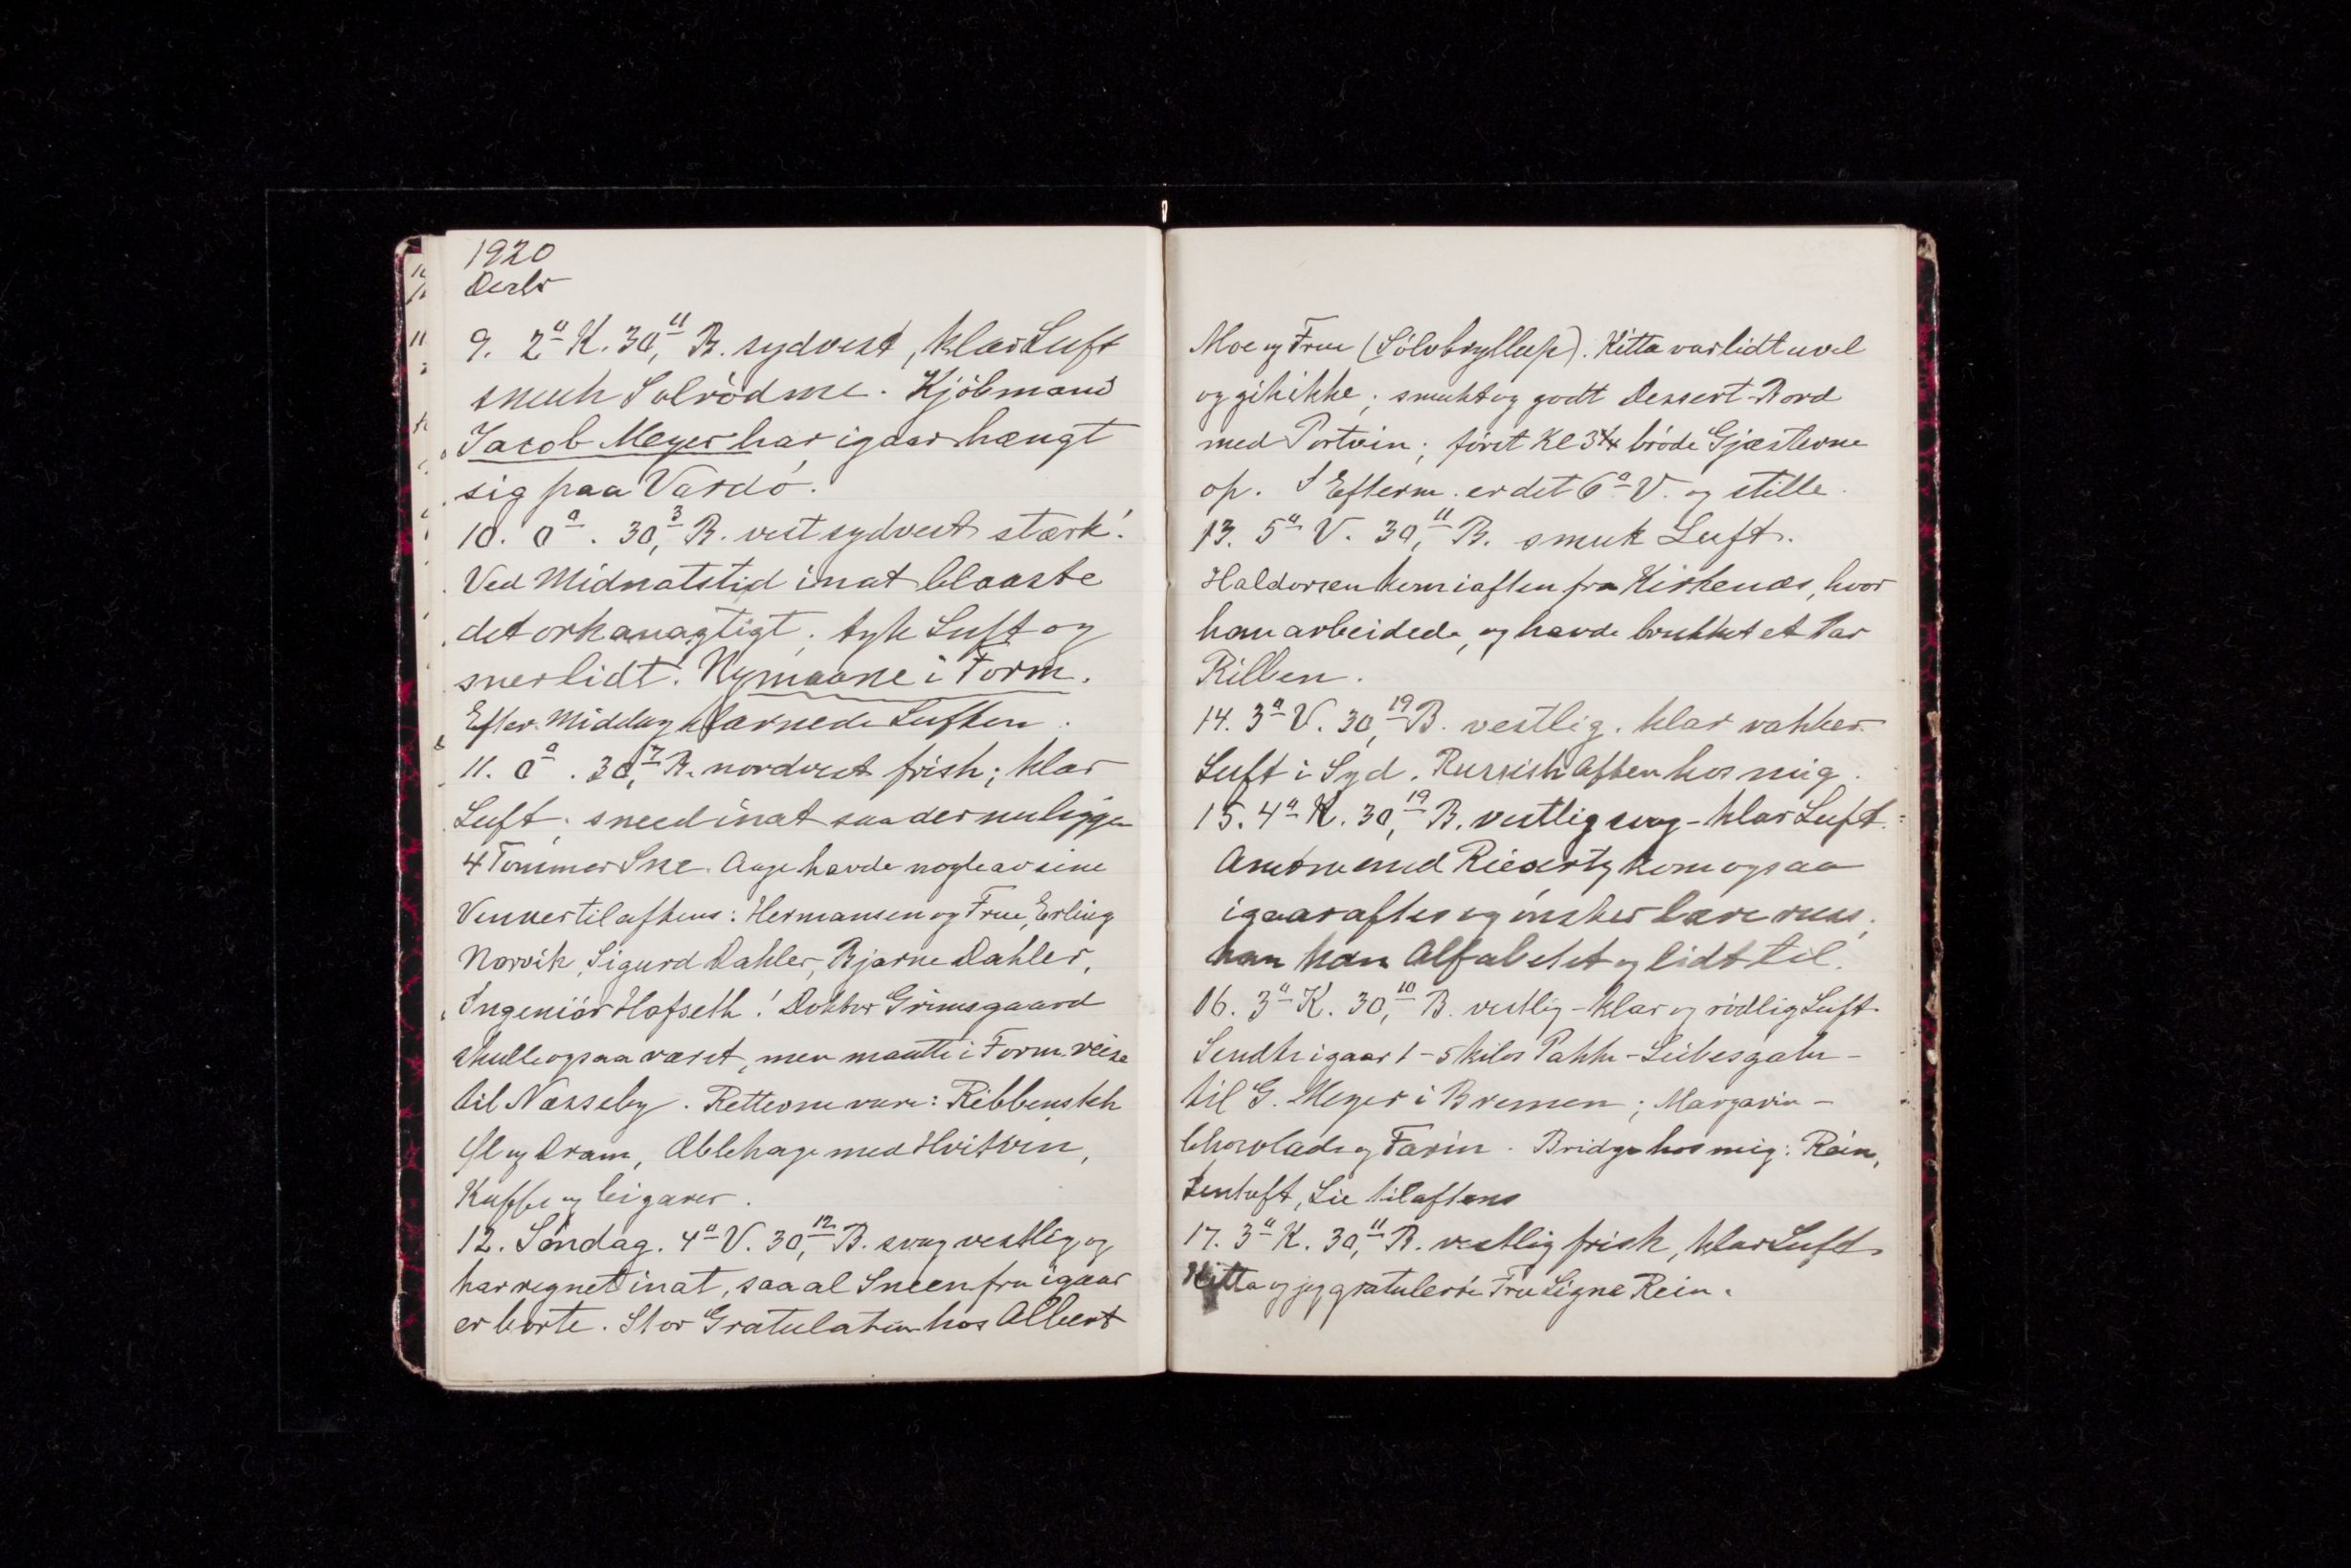 1920
Decbr
9. 2° K. 30,11 B. sydvest, klar Luft
smuk Solrødme. Kjøbmand
Jacob Meyer har igaar hængt
sig paa Vardø.
10. 0°. 30,3 B. vestsydvest stærk!
Ved Midnatstid inat blaaste
det orkanagtigt, tyk Luft og
sner lidt. Nymaane i Form.
Efter Middag klarnede Luften.
11. 0°. 30,7 B. nordvest frisk; klar
Luft; sneed inat saa der nu ligger
4 Tommer Sne. Aage havde nogle av sine
Venner tilaftens: Hermansen og Frue, Erling
Norvik, Sigurd Dahler, Bjarne Dahler,
Ingeniør Hofseth! Doktor Grimsgaard
skulle ogsaa været, men maatte i Form. reise
til Næsseby. Retterne vare: Ribbenstek
Øl og Dram, Æblekage med Hvitvin,
Kaffe og Cigarer.
12. Søndag. 4° V. 30,12 B. svag vestlig og
har regnet inat, saa al Sneen fra igaar
er borte. Stor Gratulation hos Albert
Moe og Frue (Sølvbryllup). Kitta var lidt uvel
og gik ikke; smukt og godt Dessert-Bord
med Portvin; først Kl 3 1/4 brøde Gjæsterne
op. I Efterm. er det 6° V. og stille.
13. 5° V. 30,11 B. smuk Luft.
Haldorsen kom iaften fra Kirkenæs, hvor
han arbeidede, og havde brukket et Par
Ribben.
14. 3° V. 30,19 B. vestlig. klar vakker
Luft i Syd. Russisk Aften hos mig.
15. 4° K. 30,19 B. vestlig svag - klar Luft.
Amtmand kom ogsaa
igaaraftes og ønsker lære russ;
kan han Alfabetet og lidt til.
16. 3° K. 30,10 B. vestlig - klar og rødlig Luft.
Sendte igaar 1 - 5 kilos Pakke - Liebesgabe -
til G. Meyer i Bremen; Margarin -
Chocolade og Farin. Bridge hos mig: Rein,
Lentoft, Lie tilaftens
17. 3° K. 30,11 B. vestlig frisk, klar Luft.
Kitta og jeg gratulerte Fru Signe Rein.